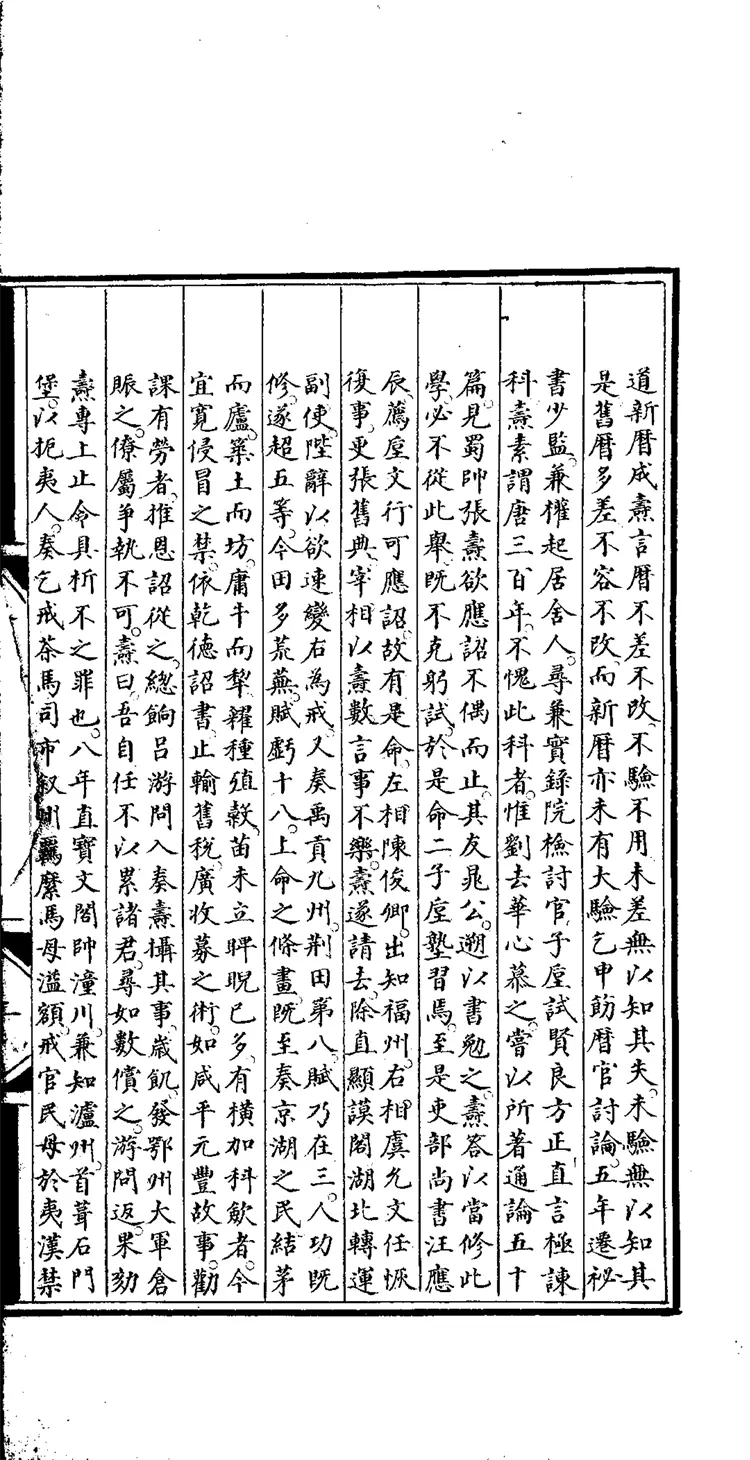 道新曆成燾言曆不差不改不驗不用未差無以知其失未驗無以知其
是舊曆多差不容不改而新曆亦未有大驗乞申飭曆官討論五年遷祕
書少監兼權起居舍人尋兼實錄院檢討官子垕試賢良方正直言極諫
科燾素謂唐三百年不愧此科者惟劉去華心慕之嘗以所著通論五十
篇見蜀帥張燾欲應詔不偶而止其友晁公遡以書勉之燾答以當修此
學必不從此舉既不克躬試於是命二子垕塾習焉至是吏部尚書汪應
辰薦垕文行可應詔故有是命左相陳俊卿出知福州右相虞允文任恢
復事更張舊典宰相以燾數言事不樂燾遂請去除直顯謨閣湖北轉運
副使陛辭以欲速變古為戒又奏禹貢九州荆田第八賦乃在三人功既
修遂超五等今田多荒蕪賦虧十八上命之條畫既至奏京湖之民結茅
而廬築土而坊庸牛而犂糴種殖穀苗未立睥睨已多有横加科歛者今
宜寛侵冒之禁依乾德詔書止輸舊税廣收募之術如咸平元豐故事勸
課有勞者推恩詔從之總餉吕游問入奏燾攝其事歲飢發鄂州大軍倉
賑之僚屬爭執不可燾曰吾自任不以累諸君尋如數償之游問返果劾
燾專上止令具析不之罪也八年直寶文閣帥潼川兼知瀘州首葺石門
堡以扼夷人奏乞戒茶馬司市叙州羈縻馬毋溢額戒官民毋於夷漢禁